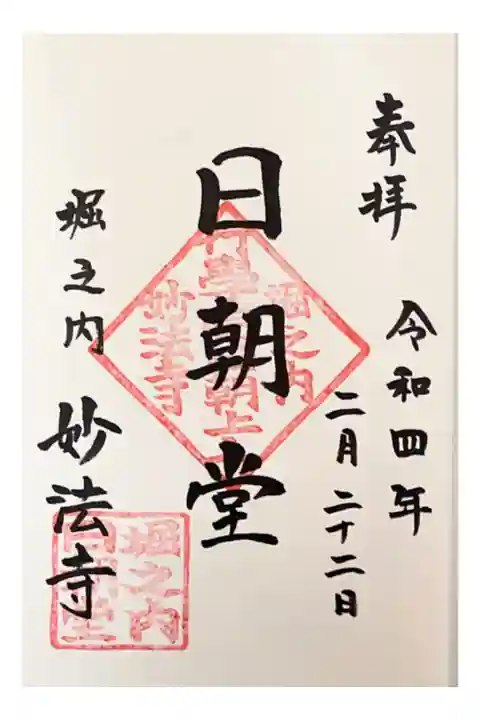 奉拝
令和四年
二月二十二日
日朝堂
堀之内
妙法寺
堀之内
妙法寺
堀之内